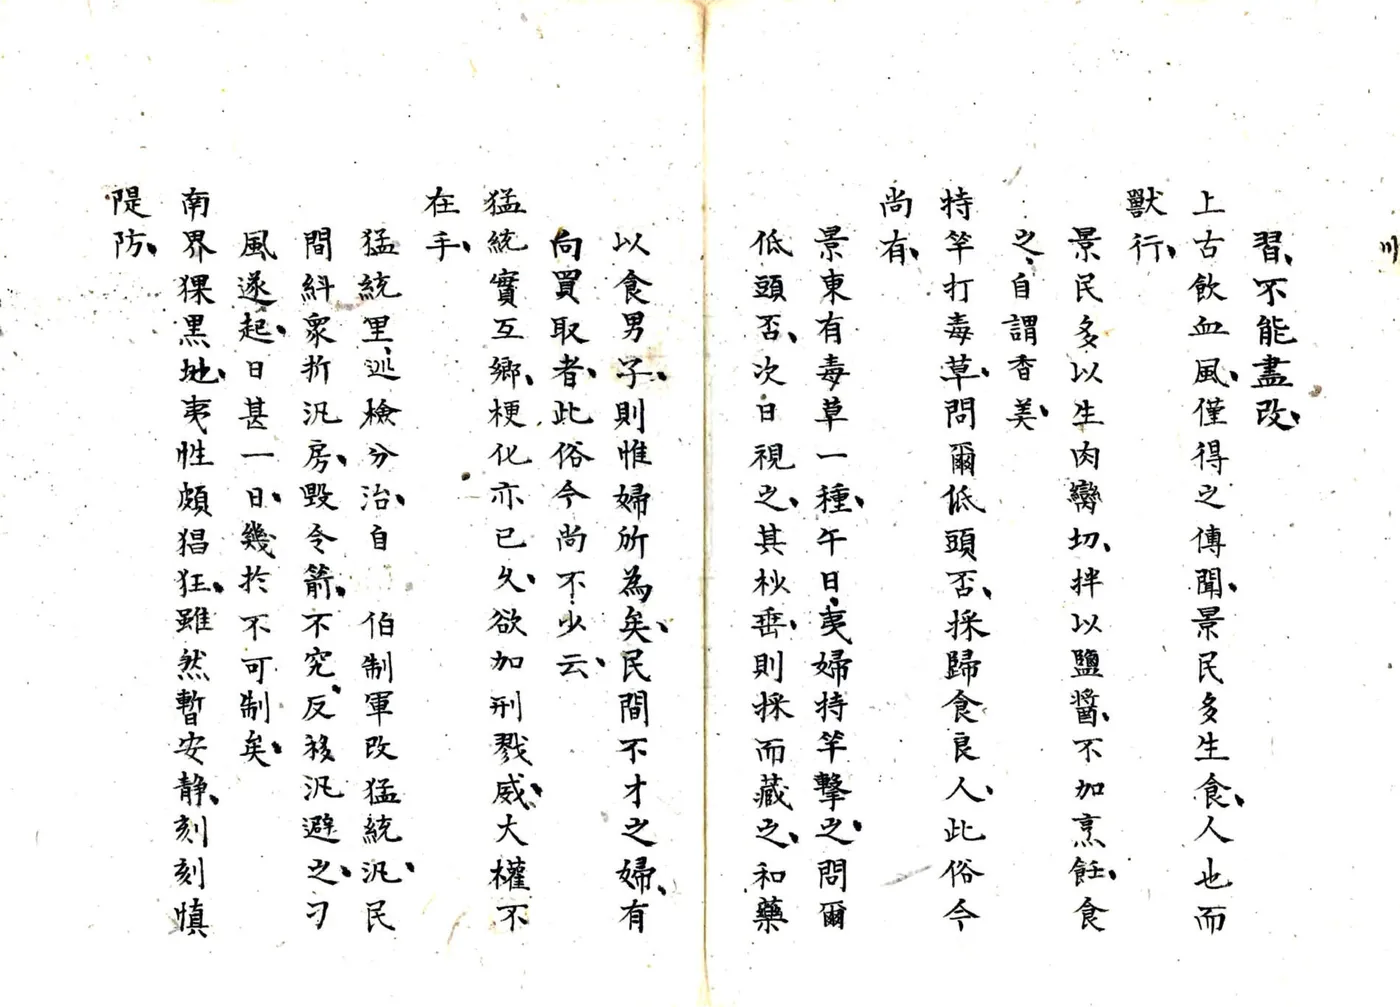 川
習、不能盡改、
上古飲血風、僅得之傳聞、景民多生食、人也而
獸行、
景民多以生肉臠切、拌以鹽醬、不加烹飪、食
之、自謂香美、
特竿打毒草、問爾低頭否、採歸食良人、此俗今
尚有、
景東有毒草一種、午日、夷婦持竿擊之、問爾
低頭否、次日視之、其杪垂、則採而藏之、和藥
以食男子、則惟婦所為矣、民間不才之婦、有
向買取者、此俗今尚不少云、
猛統實互鄉、梗化亦已久、欲加刑戮威、大權不
在手、
猛統里、巡檢分治、自 伯制軍改猛統汛、民
間糾衆折汛房、毀令箭、不究、反移汛避之、刁
風遂起、日甚一日、幾於不可制矣、
南界猓黑地、夷性頗猖狂、雖然暫安静、刻刻慎
隄防、